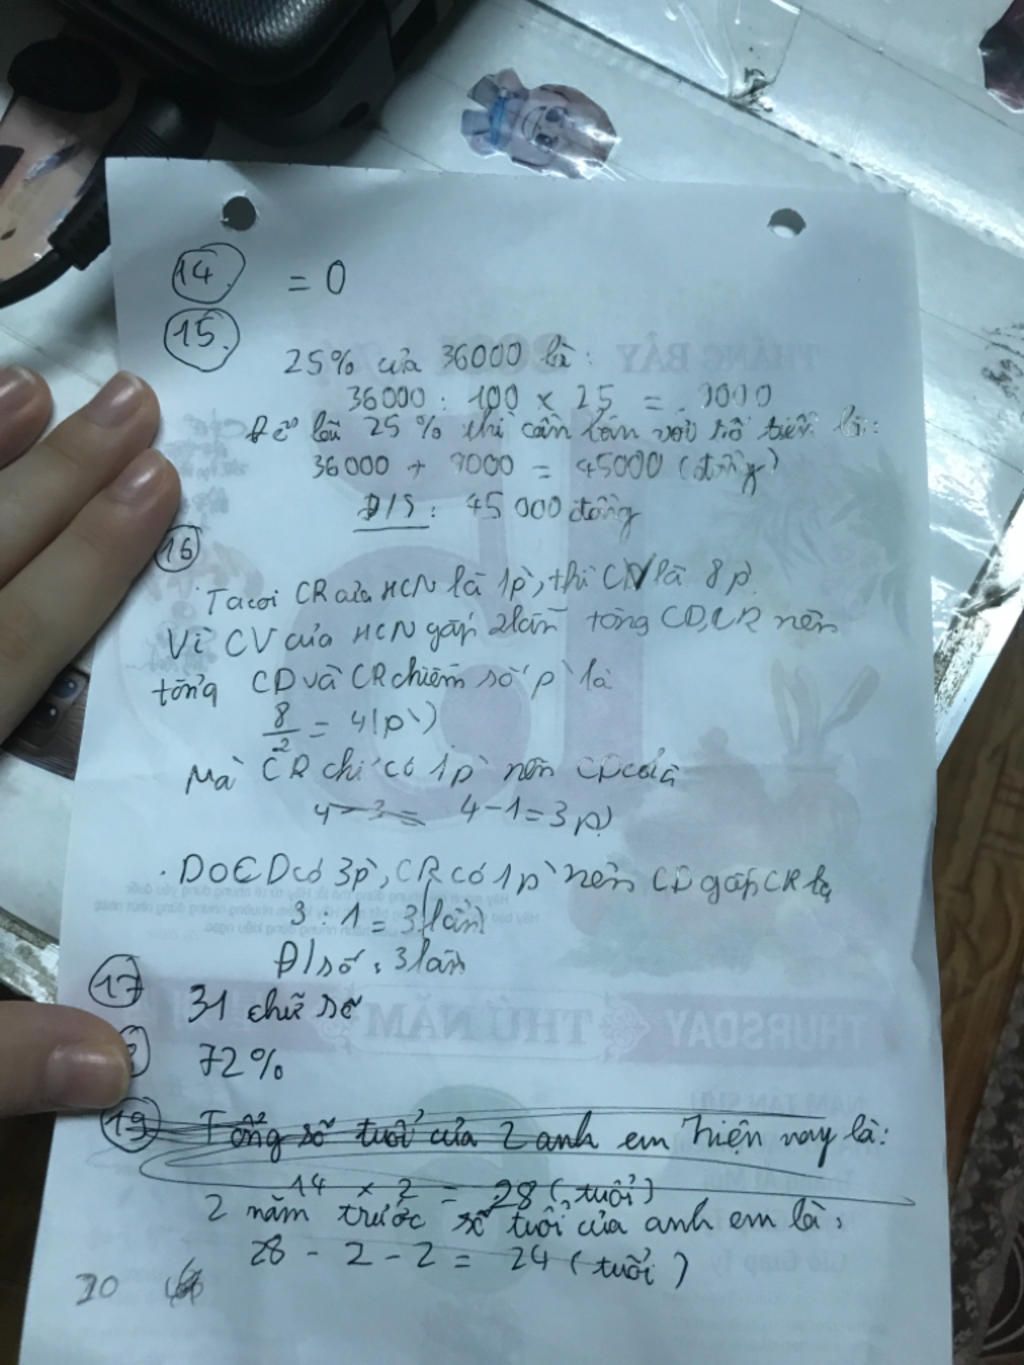 14. = 0
15.
25% của 36000 là:
36000 : 100 × 25 = 9000
Để lãi 25 % thì cần bán với số tiền là:
36000 + 9000 = 45000 (đồng)
Đ/S: 45 000 đồng
16
Ta coi CR của HCN là 1p, thì CV là 8p
Vì CV của HCN gấp 2 lần tổng CD, CR nên
tổng CD và CR chiếm số p là
8/2 = 4 (p)
Mà CR chỉ có 1p nên CD có là
4 - 3 = 4 - 1 = 3 p)
. Do CD có 3p, CR có 1p nên CD gấp CR là
3 : 1 = 3 (lần)
Đ/số: 3 lần
17 31 chữ số
72%
19 Tổng số tuổi của 2 anh em hiện nay là:
14 × 2 = 28 (tuổi)
2 năm trước số tuổi của anh em là:
28 - 2 - 2 = 24 (tuổi)
20
THÁNG BẢY
THURSDAY THỨ NĂM
NĂM TÂN SỬU
Giờ Giáp Tý